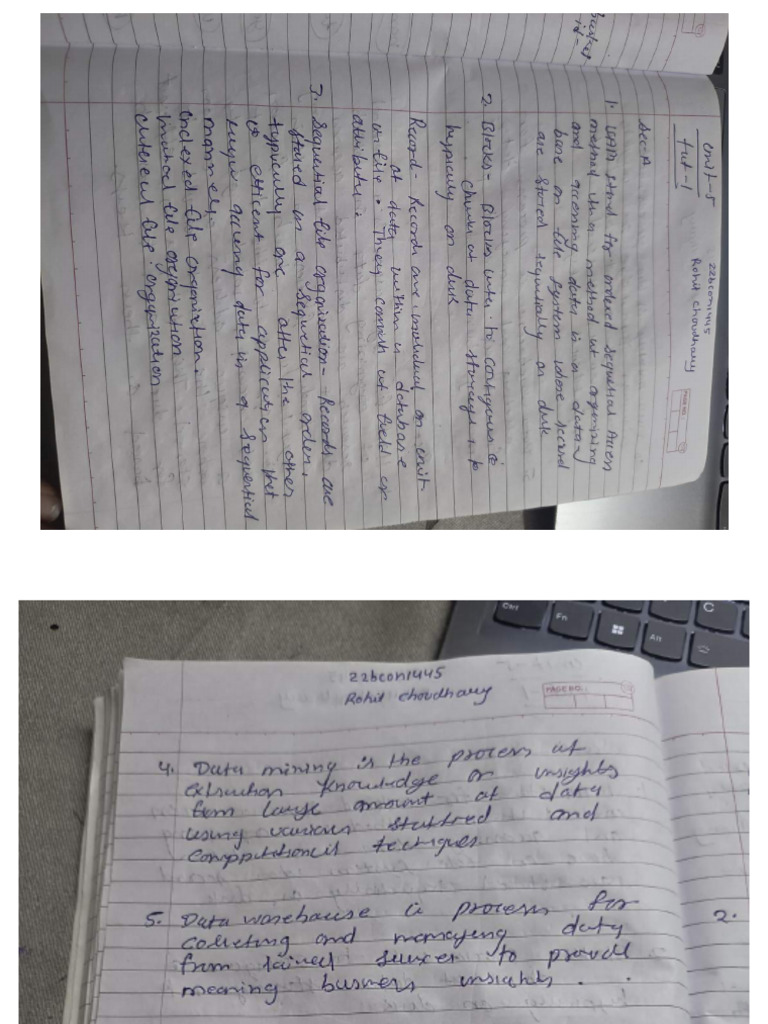 unit-5
tut-1
22bcon1445
Rohit choudhary
PAGE NO.
Sec-A
1. stand for ordered sequential Accen
method it is a method of organizing
and accening data in a data
base on file system whose record
are stored sequentially on disk
2. Blocks- Blocks to contiguous
chunk of data storage,
typically on disk
Record- Records are individual on unit
of data within a database
or file. They consist of field or
attributes.
3. Sequential file organization- Records are
stored in a sequential order.
typically one after the other
is efficient for application that
accening data in a sequential
manner.
indexed file organization.
file organization
file organization
Ctrl
Fn
Alt
C
22bcon1445
Rohit choudhary
PAGE NO.
4. Data mining is the process of
extraction knowledge or insights
from large amount of data
using various and
techniques
5. Data warehouse is process for
collecting and managing data
from to provide
meaning busness insights.
2.